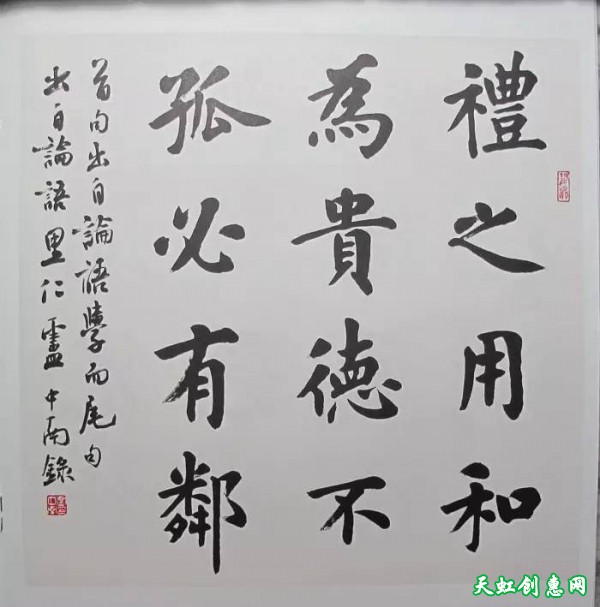 禮之用和
為貴德不
孤必有鄰
首句出自論語學而尾句
出自論語里仁盧中南錄
天虹创惠网